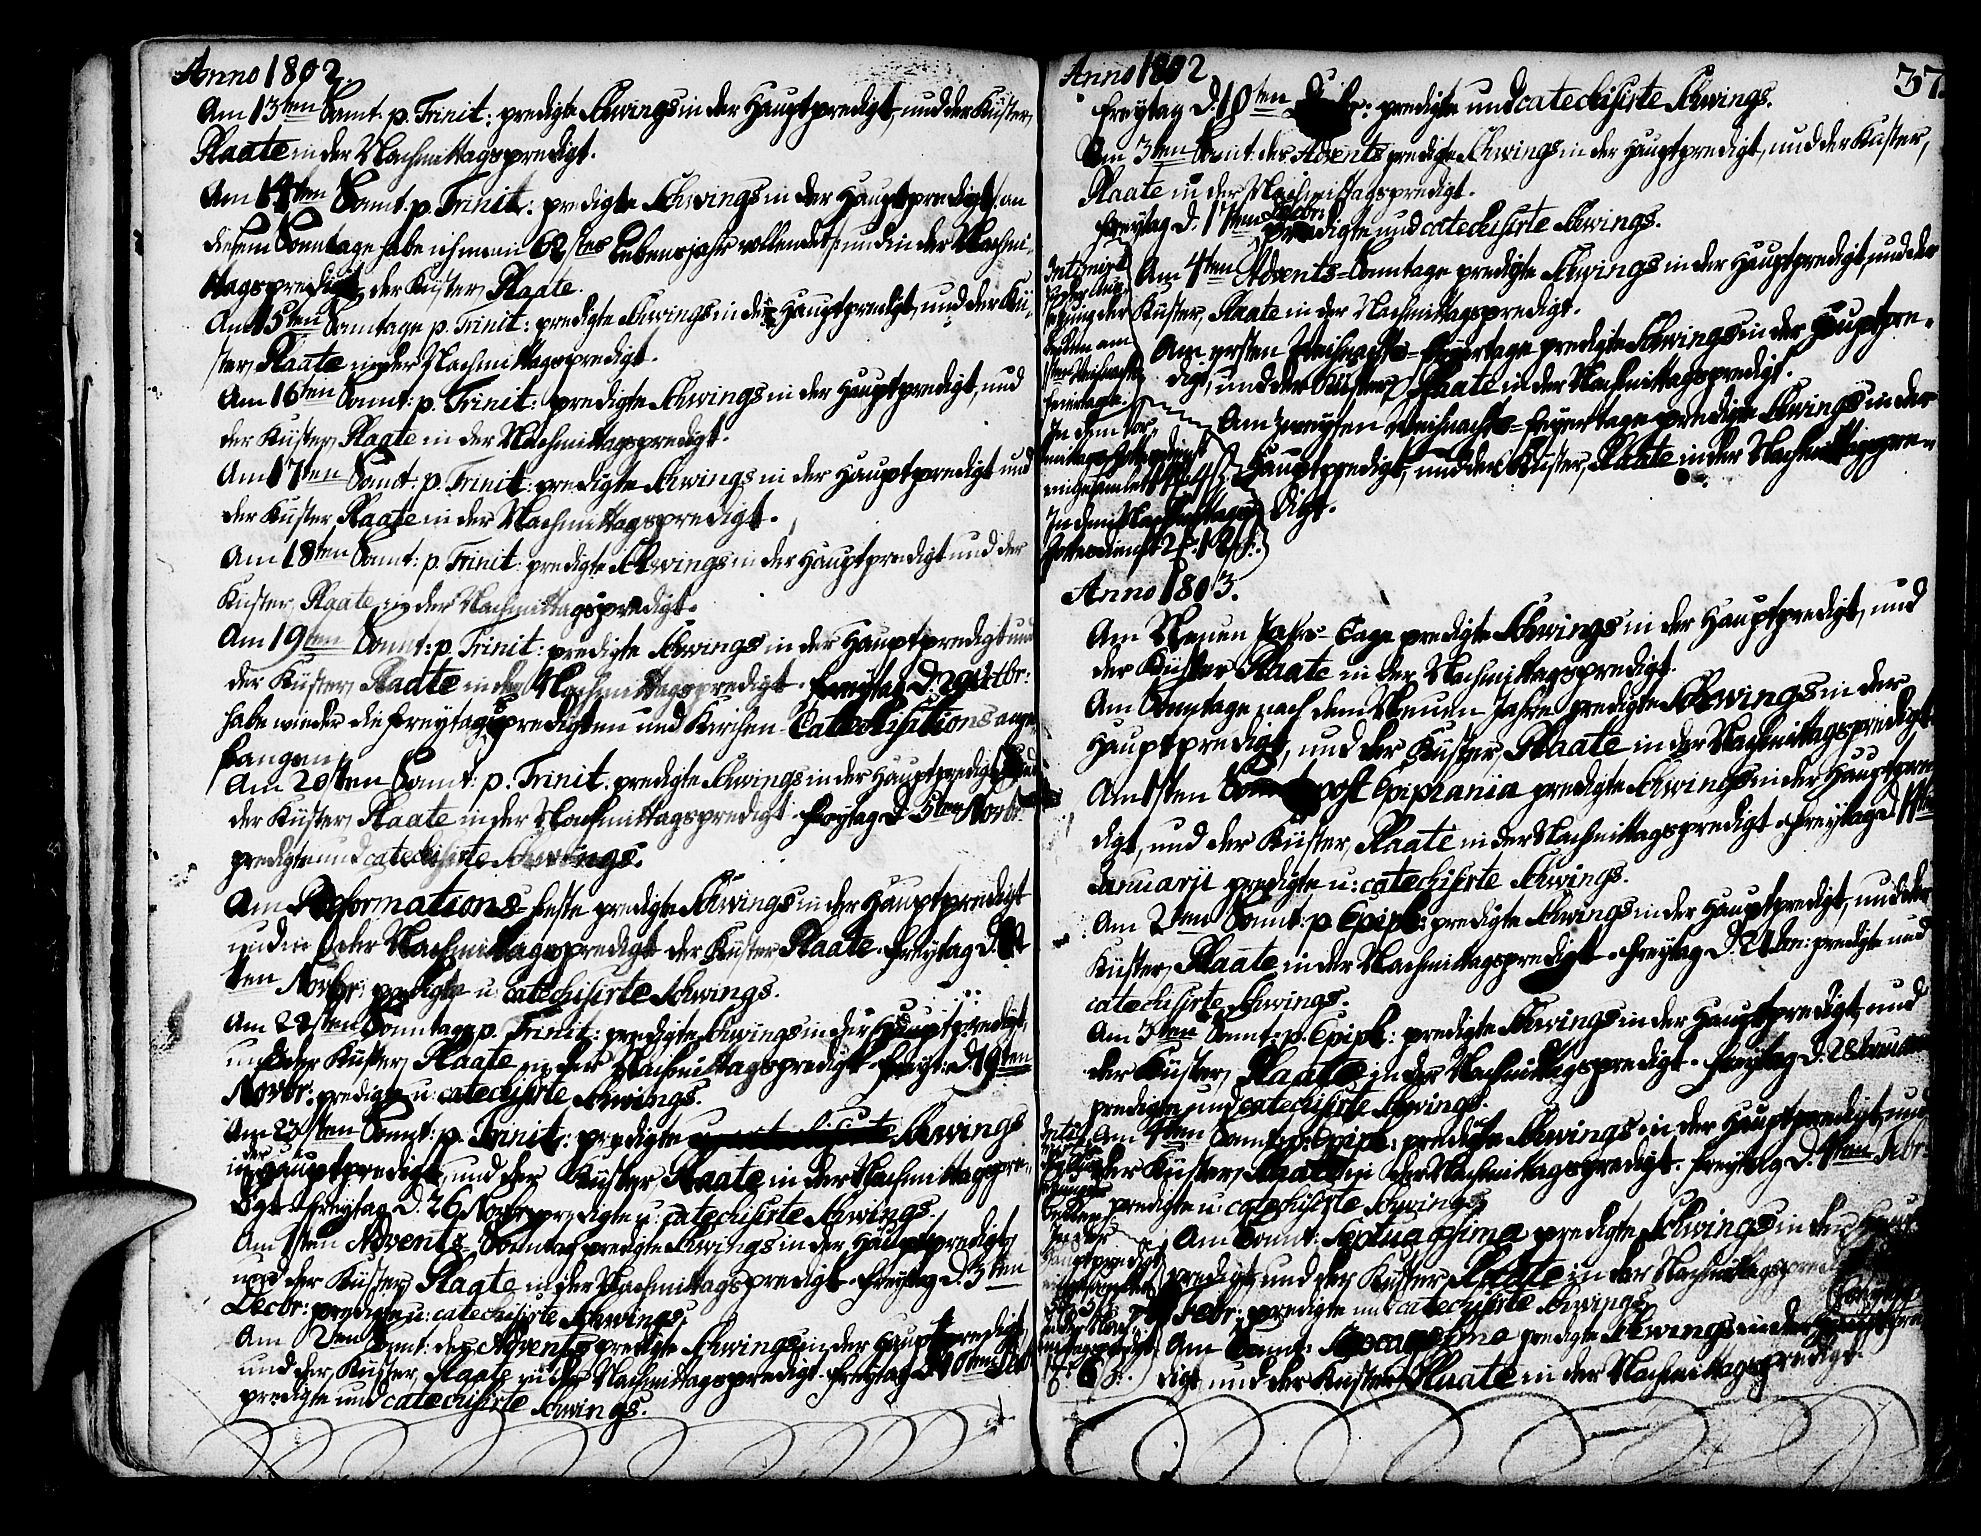 Anno 1802.
Am 13ten Sonnt: p. Trinit: predigte Schwings in der Hauptpredigt, und der Küster,
Plaate in der Nachmittagspredigt.
Am 14ten Sonnt: p. Trinit: predigte Schwings in der Hauptpredigt /: an
diesem Sonntage habe ich mein 62stes Lebensjahr vollendet :/ und in der Nachmi-
ttagspredigt, der Küster, Plaate.
Am 15ten Sonntage p. Trinit: predigte Schwings in der Hauptpredigt, und der Kü-
ster, Plaate in der Nachmittagspredigt.
Am 16ten Sonnt: p. Trinit: predigte Schwings in der Hauptpredigt, und
der Küster, Plaate in der Nachmittagspredigt.
Am 17ten Sonnt: p. Trinit: predigte Schwings in der Hauptpredigt und
der Küster, Plaate in der Nachmittagspredigt.
Am 18ten Sonnt: p. Trinit: predigte Schwings in der Hauptpredigt und der
Küster, Plaate in der Nachmittagspredigt.
Am 19ten Sonnt: p. Trinit: predigte Schwings in der Hauptpredigt und
der Küster, Plaate in der Nachmittagspredigt. Freytag d. 29 Octbr:
habe wieder die Freytagspredigten und Kirchen-Catechisitions ange-
fangen.
Am 20sten Sonnt: p. Trinit. predigte Schwings in der Hauptpredigt, und
der Küster, Plaate in der Nachmittagspredigt. Freytag d. 5ten Novbr:
predigte und catechisirte Schwings.
Am Reformations-Feste predigte Schwings in der Hauptpredigt
und in der Nachmittagspredigt der Küster Plaate. Freytag d. 12
ten Novbr: predigte u: catechisirte Schwings.
Am 22sten Sonntage p. Trinit: predigte Schwings in der Hauptpredigt,
und der Küster, Plaate in der Nachmittagspredigt. Freyt: d. 19ten
Novbr: predigte u: catechisirte Schwings.
Am 23sten Sonnt: p. Trinit: predigte Schwings
in der Hauptpredigt, und der Küster Plaate in der Nachmittagspre-
digt. Freytag d. 26 Novbr: predigte u: catechisirte Schwings.
Am 1sten Advents Sonntag predigte Schwings in der Hauptpredigt,
und der Küster, Plaate in der Nachmittagspredigt. Freytag d. 3ten
Decbr: predigte u: catechisirte Schwings.
Am 2ten Sonnt: des Advents predigte Schwings in der Hauptpredigt,
und der Küster, Plaate in der Nachmittagspredigt. Freytag d. 10ten Decbr
predigte und catechisirte Schwings.
Anno 1802
37.
Freytag d. 10ten Decbr: predigte und catechisirte Schwings.
Am 3ten Sonnt: des Advents predigte Schwings in der Hauptpredigt, und der Küster,
Plaate in der Nachmittagspredigt.
Freytag d. 17ten Decbr predigte und catechisirte Schwings.
Am 4ten Advents-Sonntage predigte Schwings in der Hauptpredigt, und der
Küster, Plaate in der Nachmittagspredigt.
Am ersten Weihnachts-Feyertage predigte Schwings in der Hauptpre-
digt, und der Küster, Plaate in der Nachmittagspredigt.
Am zweyten Weihnachts-Feyertage predigte Schwings in der
Hauptpredigt, und der Küster, Plaate in der Nachmittagspre-
digt.
am
Weihnachts
feiertage.
In dem Vor-
mittags Gottesdienst
eingesamlet
In dem Nachmittags
Gottesdienst
Anno 1803.
Am Neuen Jahrs-Tage predigte Schwings in der Hauptpredigt, und
der Küster Plaate in der Nachmittagspredigt.
Am Sonntage nach dem Neuen Jahre predigte Schwings in der
Hauptpredigt, und der Küster, Plaate in der Nachmittagspredigt.
Am 1sten Sonnt post Epiprania predigte Schwings in der Hauptpre-
digt, und der Küster, Plaate in der Nachmittagspredigt. Freytag d.
Januarii predigte u: catechisirte Schwings.
Am 2ten Sonnt: p. Epiph: predigte Schwings in der Hauptpredigt, und der
Küster, Plaate in der Nachmittagspredigt. Freytag d. 21 Jan: predigte und
catechisirte Schwings.
Am 3ten Sonnt: p. Epiph: predigte Schwings in der Hauptpredigt, und
der Küster, Plaate in der Nachmittagspredigt. Freytag d. 28 Januar
predigte und catechisirte Schwings.
Am 4ten Sonnt: p. Epiph: predigte Schwings in der Hauptpredigt, und
der Küster, Plaate in der Nachmittagspredigt. Freytag d. 4ten Febr:
predigte u: catechisirte Schwings.
Am Sonnt: Septuagesima predigte Schwings in der Haupt-
predigt, und der Küster, Plaate in der Nachmittagspredigt
Febr: predigte und catechisirte Schwings.
Am Sonnt: Sexagesima predigte Schwings in der Hauptpre-
digt, und der Küster, Plaate in der Nachmittagspredigt.
In der
Hauptpredigt